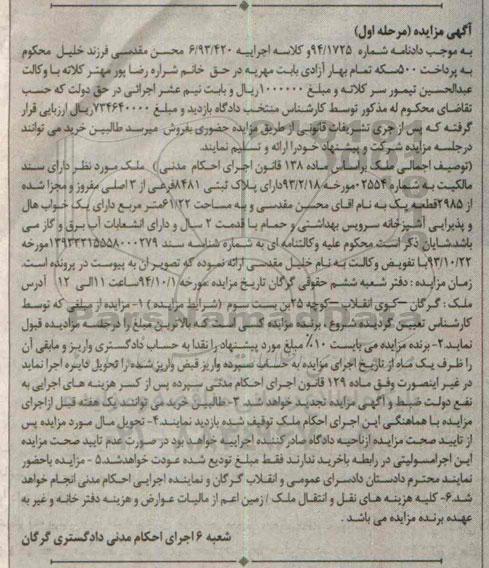 آگهی مزایده (مرحله اول)
به موجب دادنامه شماره ۹۴/۱۷۲۵و کلاسه اجراییه ۶/۹۳/۴۲۰ محسن مقدسی فرزند خلیل محکوم
به پرداخت ۵۰۰سکه تمام بهار آزادی بابت مهریه در حق خانم شراره رضا پور مهتر کلاته با وکالت
عبدالحسین تیمور سر کلاته و مبلغ ۱۰۰۰۰۰۰ریال و بابت نیم عشر اجرائی در حق دولت که حسب
تقاضای محکوم له مذکور توسط کارشناس منتخب دادگاه بازدید و مبلغ ۷۳۴۶۴۰۰۰۰ریال ارزیابی قرار
گرفته که پس از جری تشریفات قانونی از طریق مزایده حضوری بفروش میرسد طالبین خرید می توانند
درجلسه مزایده شرکت و پیشنهاد خودرا ارائه و تسلیم نمایند.
(توصیف اجمالی ملک براساس ماده ۱۳۸ قانون اجرای احکام مدنی) ملک مورد نظر دارای سند
مالکیت به شماره ۰۲۵۵۴مورخه ۹۳/۲/۱۸دارای پلاک ثبتی ۸۴۸۱فرعی از ۳ اصلی مفروز و مجزا شده
از ۲۹۸۵قطعه یک به نام اقای محسن مقدسی و به مساحت ۶۱/۲۲متر مربع دارای یک خواب هال
و پذیرایی آشپزخانه سرویس بهداشتی و حمام با قدمت ۲ سال و دارای انشعابات آب برق و گاز می
باشدشایان ذکر است محکوم علیه وکالتنامه ای به شماره شناسه سند ۱۳۹۳۳۲۱۵۵۵۸۰۰۰۲۷۹مورخه
۹۳/۱۰/۲۲با تفویض وکالت به نام خلیل مقدسی ارائه نموده که تصویر آن به پیوست در پرونده است.
زمان مزایده: دفتر شعبه ششم حقوقی گرگان تاریخ مزایده مورخه ۹۴/۱۰/۱ساعت ۱۱الی ۱۲ آدرس
ملک : گرگان –کوی انقلاب –کوچه ۲۵بن بست سوم (شرایط مزایده ) ۱- مزایده از مبلغی که توسط
کارشناس تعیین گردیده شروع ، برنده مزایده کسی است که بالاترین مبلغ را درجلسه مزایده قبول
نماید.۲- برنده مزایده می بایست ۱۰٪ مبلغ مورد پیشنهاد را نقدا به حساب دادگستری واریز و مابقی آن
را ظرف یک ماه از تاریخ اجرای مزایده به حساب سپرده واریز قبض واریز شده را تحویل دایره اجرا نماید
در غیر اینصورت وفق ماده ۱۲۹ قانون اجرای احکام مدنی سپرده پس از کسر هزینه های اجرایی به
نفع دولت ضبط و آگهی مزایده تجدید خواهد شد. ۳- طالبین خرید می توانند یک هفته قبل از اجرای
مزایده با هماهنگی این اجرای احکام ملک توقیف شده بازدید نمایند.۴- تحویل مال مورد مزایده پس
از تایید صحت مزایده ازناحیه دادگاه صادر کننده اجراییه خواهد بود در صورت عدم تایید صحت مزایده
این اجرامسولیتی در رابطه باخرید ندارند فقط مبلغ تودیع شده عودت خواهدشد.۵ - مزایده باحضور
نماینده محترم دادستان دادسرای عمومی و انقلاب گرگان و نماینده اجرایی احکام مدنی انجام خواهد
شد.۶- کلیه هزینه های نقل و انتقال ملک / زمین اعم از مالیات عوارض و هزینه دفتر خانه و غیر به
عهده برنده مزایده می باشد .
شعبه ۶ اجرای احکام مدنی دادگستری گرگان
ParsNamadData